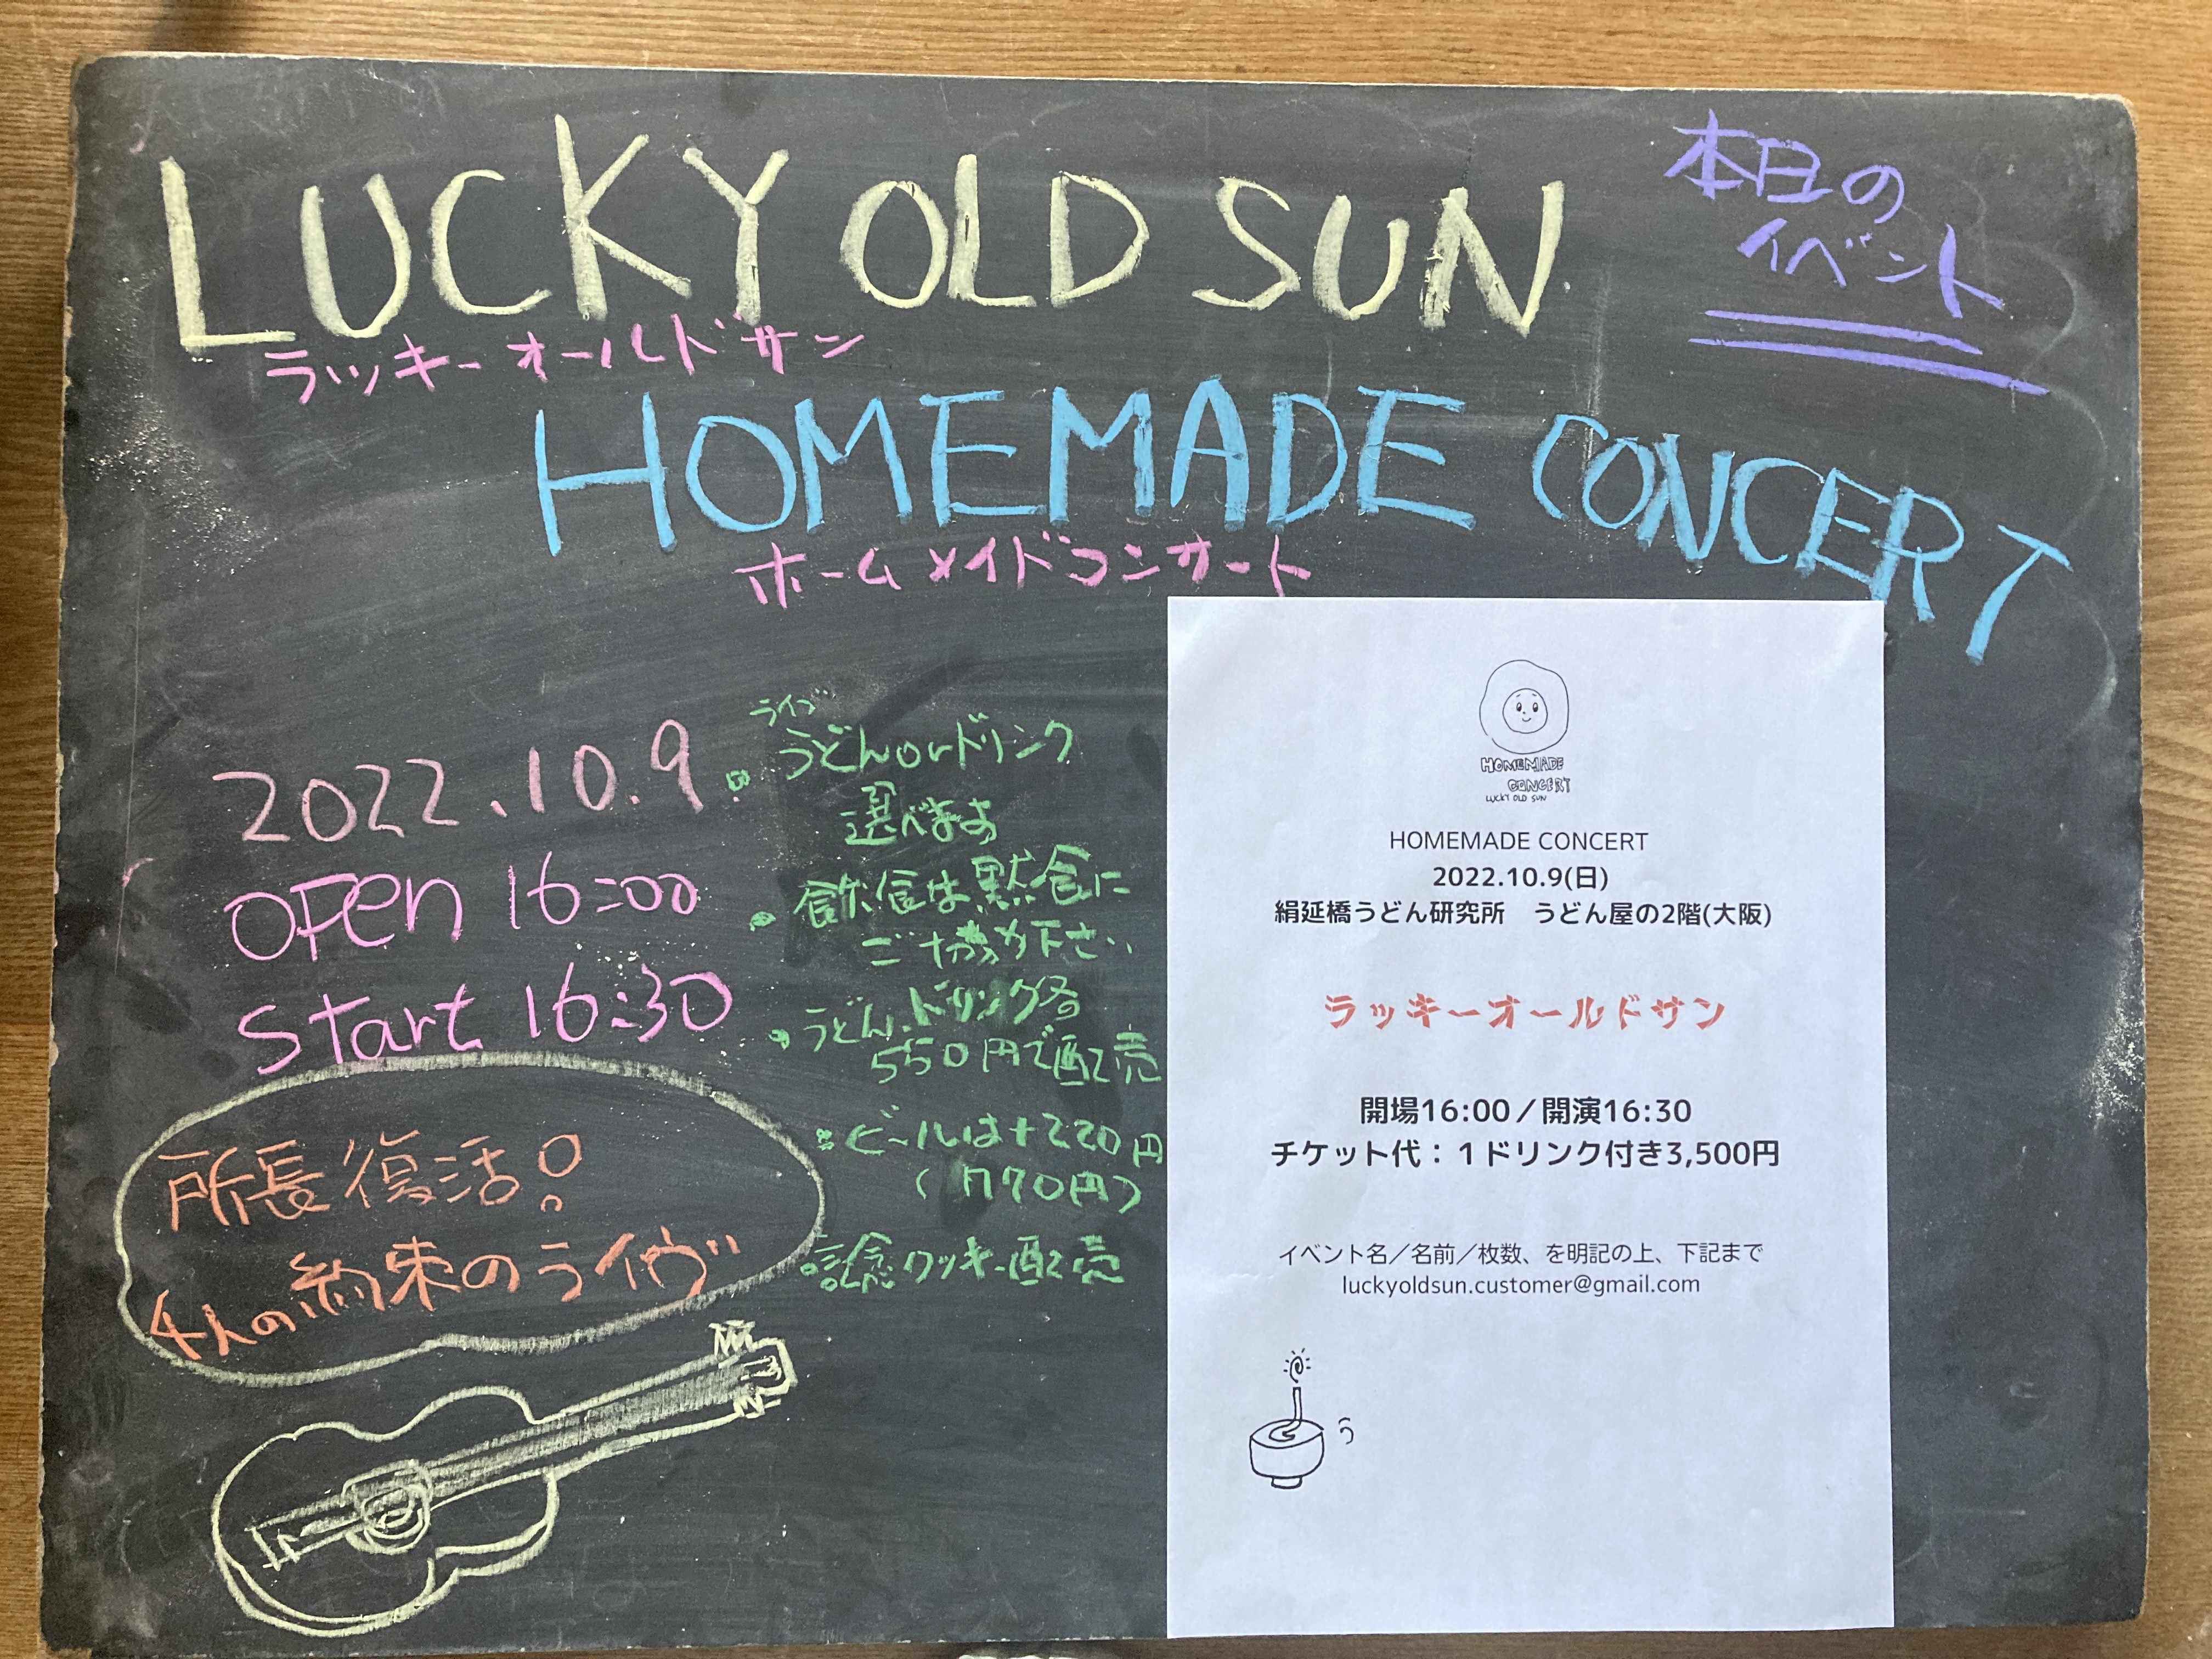 LUCKY OLD SUN
本日の
イベント
ラッキーオールドサン
HOMEMADE CONCERT
ホームメイドコンサート
2022.10.9
OPen 16:00
Start 16:30
ライブ
うどんorドリンク
選べます
は黙食に
ご協力下さい
うどん、ドリンク各
550円で販売
ビールは+220円
(770円)
クッキー販売
所長復活!
4人の約束のライヴ
HOMEMADE
CONCERT
LUCKY OLD SUN
HOMEMADE CONCERT
2022.10.9(日)
絹延橋うどん研究所 うどん屋の2階(大阪)
ラッキーオールドサン
開場16:00/開演16:30
チケット代:1ドリンク付き3,500円
イベント名/名前/枚数、を明記の上、下記まで
luckyoldsun.customer@gmail.com